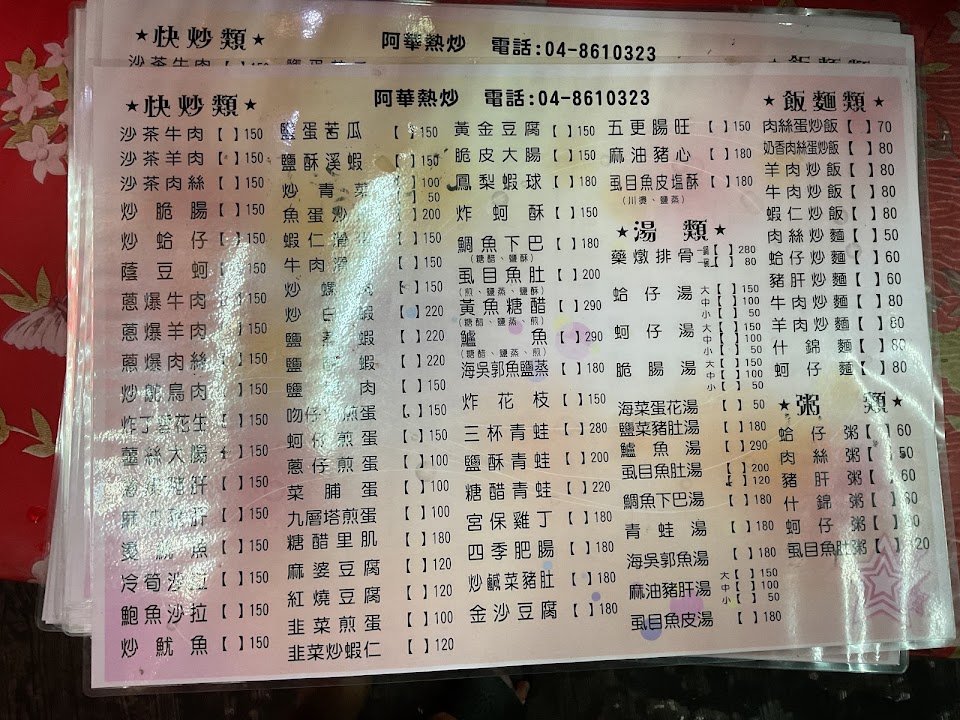 ★快炒類★ 阿華熱炒 電話:04-8610323
★快炒類★ 阿華熱炒 電話:04-8610323
沙茶牛肉【 】150
沙茶羊肉【 】150
沙茶肉絲【 】150
炒脆腸【 】150
炒蛤仔【 】150
蔭豆蚵【 】150
蔥爆牛肉【 】150
蔥爆羊肉【 】150
蔥爆肉絲【 】150
炒鴕鳥肉【 】150
炸丁香花生【 】150
薑絲大腸【 】150
豬肝【 】150
麻 肝【 】150
魚【 】150
冷筍沙拉【 】150
鮑魚沙拉【 】150
炒魷魚【 】150
鹽蛋苦瓜【 】150
鹽酥溪蝦【 】150
炒青菜【 】100
50
魚蛋沙 【 】200
蝦仁滑 【 】150
牛肉滑 【 】150
炒螺 【 】150
炒白蝦【 】220
鹽 蝦【 】220
鹽 蝦【 】220
鹽 肉【 】150
吻仔 煎蛋【 】150
蚵仔煎蛋【 】150
蔥仔煎蛋【 】100
菜脯蛋【 】100
九層塔煎蛋【 】100
糖醋里肌【 】180
麻婆豆腐【 】120
紅燒豆腐【 】120
韭菜煎蛋【 】100
韭菜炒蝦仁【 】120
黃金豆腐【 】150
脆皮大腸【 】150
鳳梨蝦球【 】180
炸蚵酥【 】150
鯛魚下巴【 】180
(糖醋、鹽酥)
虱目魚肚【 】200
(煎、鹽蒸、鹽酥)
黃魚糖醋【 】290
(糖醋、鹽蒸、煎)
鱸魚【 】290
(糖醋、鹽蒸、煎)
海吳郭魚鹽蒸【 】180
炸花枝【 】150
三杯青蛙【 】280
鹽酥青蛙【 】200
糖醋青蛙【 】220
宮保雞丁【 】180
四季肥腸【 】180
炒鹹菜豬肚【 】180
金沙豆腐【 】180
五更腸旺【 】150
麻油豬心【 】180
虱目魚皮塩酥【 】180
(川燙、鹽蒸)
★湯類★
藥燉排骨 一鍋【 】280
一碗【 】80
蛤仔湯 大【 】150
中【 】100
小【 】50
蚵仔湯 大【 】150
中【 】100
小【 】50
脆腸湯 大【 】150
中【 】100
小【 】50
海菜蛋花湯【 】50
鹽菜豬肚湯【 】180
鱸魚湯【 】290
虱目魚肚湯【 】200
【 】120
鯛魚下巴湯【 】180
青蛙湯【 】180
海吳郭魚湯【 】180
麻油豬肝湯 大【 】150
中【 】100
小【 】50
虱目魚皮湯【 】180
★飯麵類★
肉絲蛋炒飯【 】70
奶香肉絲蛋炒飯【 】80
羊肉炒飯【 】80
牛肉炒飯【 】80
蝦仁炒飯【 】80
肉絲炒麵【 】50
蛤仔炒麵【 】60
豬肝炒麵【 】60
牛肉炒麵【 】80
羊肉炒麵【 】80
什錦麵【 】80
蚵仔麵【 】80
★粥類★
蛤仔粥【 】60
肉絲粥【 】50
豬肝粥【 】60
什錦粥【 】
蚵仔粥【 】
虱目魚肚粥【 】120